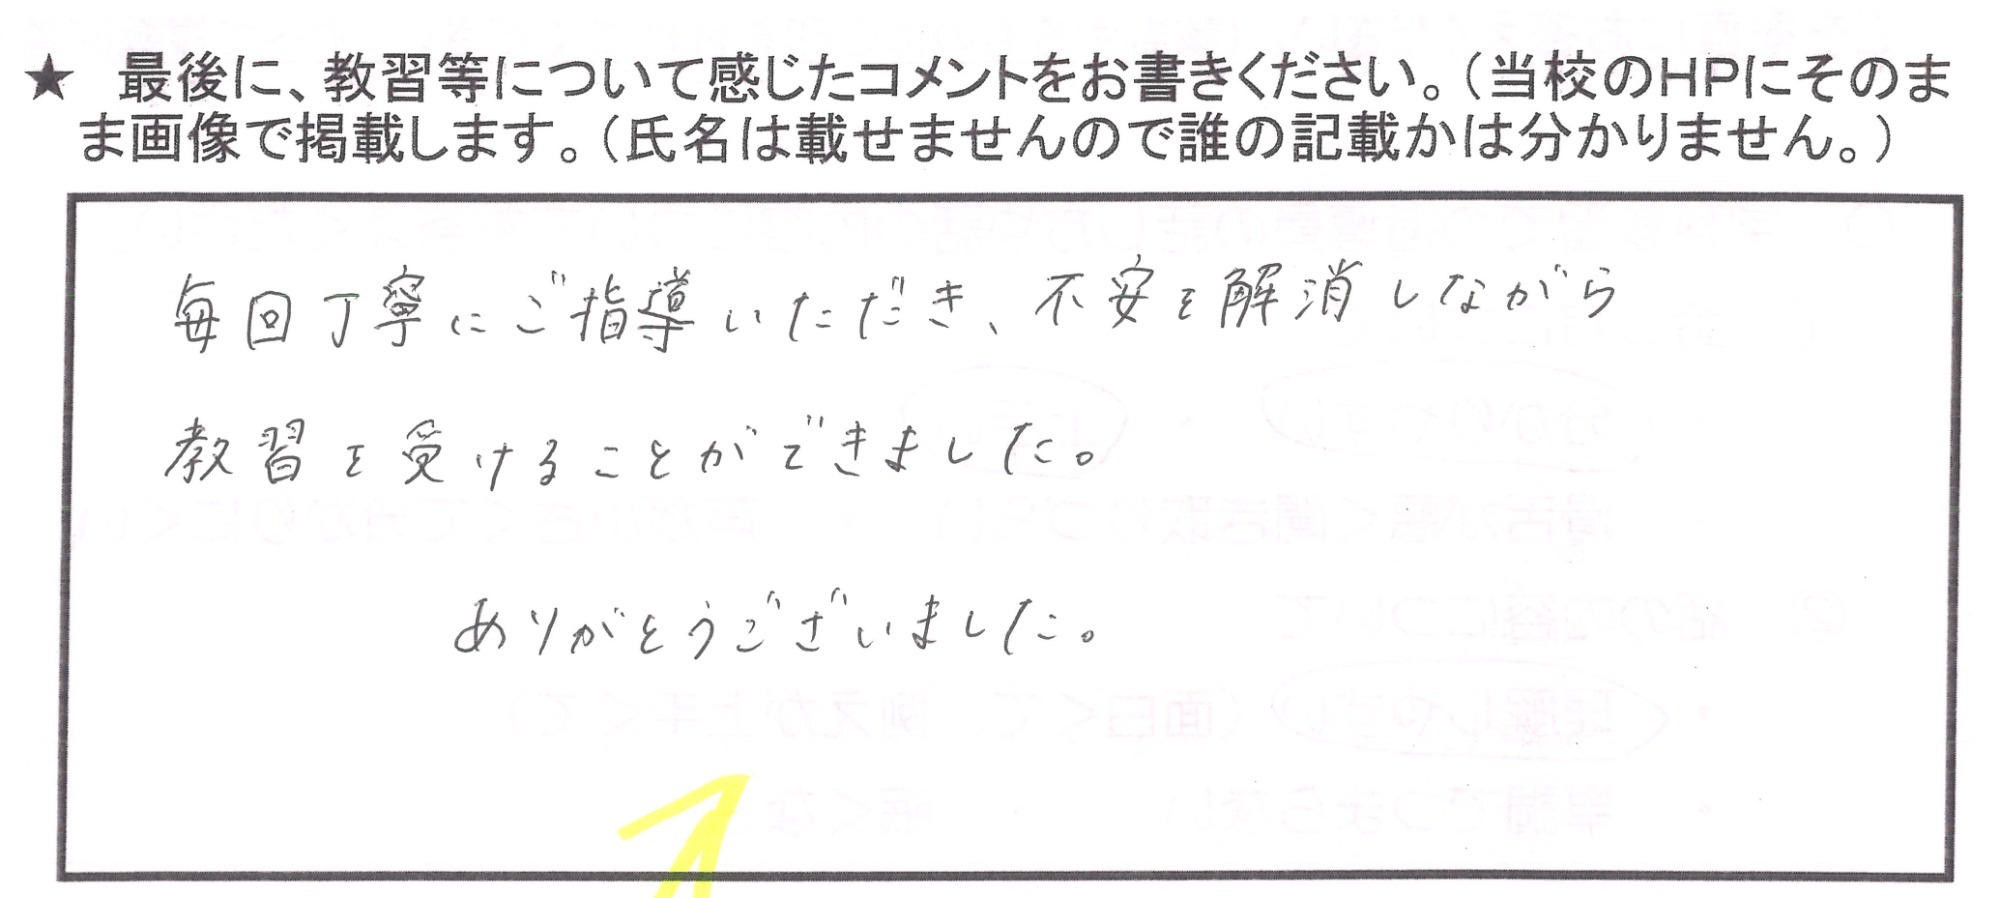 ★ 最後に、教習等について感じたコメントをお書きください。（当校のHPにそのま
ま画像で掲載します。（氏名は載せませんので誰の記載かは分かりません。）
毎回丁寧にご指導いただき、不安を解消しながら
教習を受けることができました。
ありがとうございました。